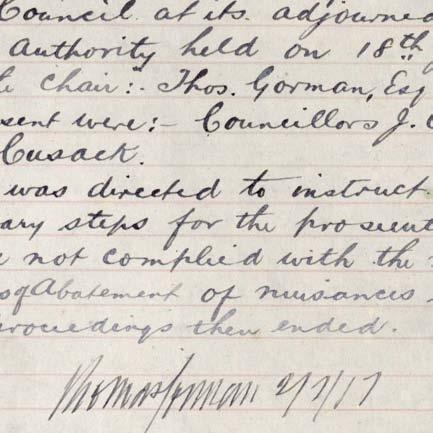 Council at its adjourned
Authority held on 18th
Chair:- Thos. Gorman, Esq
sent were:- Councillors J. C
Cusack.
was directed to instruct
ary steps for the prosecut
not complied with the
of Abatement of nuisances
proceedings then ended.
Thomas Gorman 2/2/17